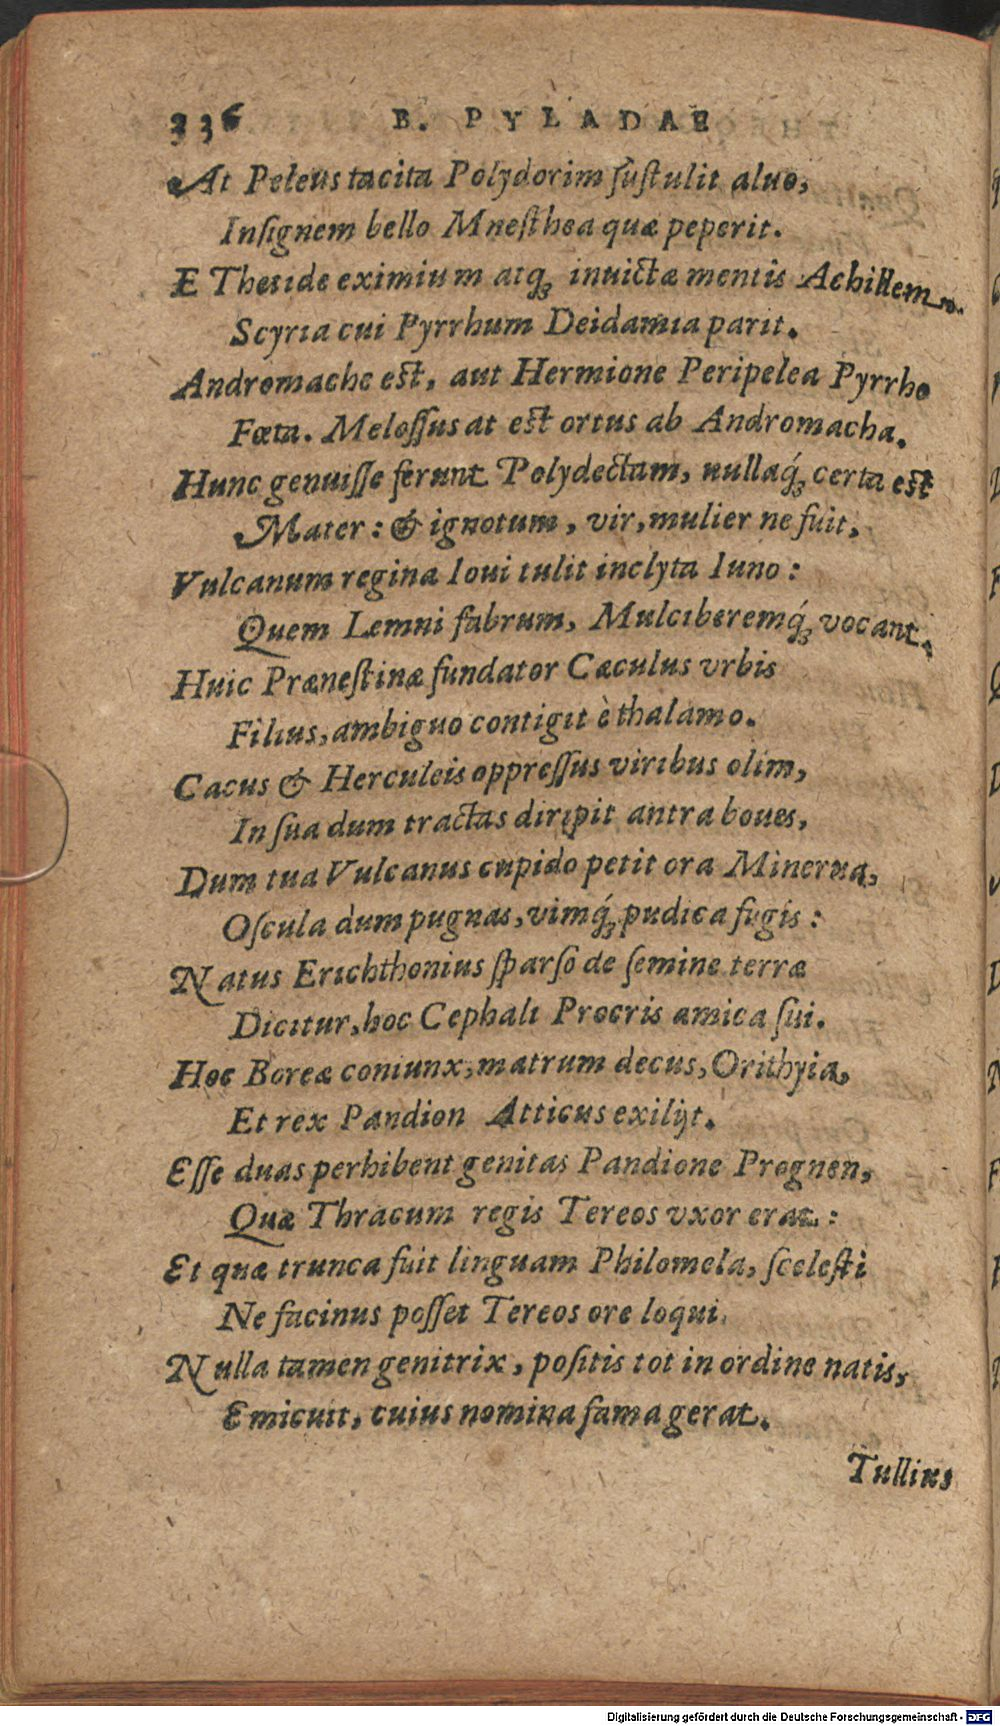 336 B. PYLADAE
At Peleus tacita Polydorim ſuſtulit aluo,
Inſignem bello Mneſthea quæ peperit.
E Thetide eximium atq; inuictæ mentis Achillem.
Scyria cui Pyrrhum Deidamia parit.
Andromache eſt, aut Hermione Peripelea Pyrrho
Fœta. Meloſſus at eſt ortus ab Andromacha.
Hunc genuiſſe ferunt Polydectam, nullaq́; certa eſt
Mater: & ignotum, vir, mulier ne fuit,
Vulcanum regina Ioui tulit inclyta Iuno:
Quem Lemni fabrum, Mulciberemq́; vocant.
Huic Præneſtinæ fundator Cæculus vrbis
Filius, ambiguo contigit è thalamo.
Cacus & Herculeis oppreſſus viribus olim,
In ſua dum tractas diripit antra boues,
Dum tua Vulcanus cupido petit ora Minerua,
Oſcula dum pugnas, vimq́; pudica fugis:
Natus Erichthonius ſparſo de ſemine terræ
Dicitur, hoc Cephali Procris amica ſui.
Hoc Boreæ coniunx, matrum decus, Orithyia,
Et rex Pandion Atticus exilijt.
Eſſe duas perhibent genitas Pandione Prognen,
Quæ Thracum regis Tereos vxor erat:
Et quæ trunca fuit linguam Philomela, ſceleſti
Ne facinus poſſet Tereos ore loqui.
Nulla tamen genitrix, poſitis tot in ordine natis,
Emicuit, cuius nomina fama gerat.
Tullius
Digitalisierung gefördert durch die Deutsche Forschungsgemeinschaft - DFG